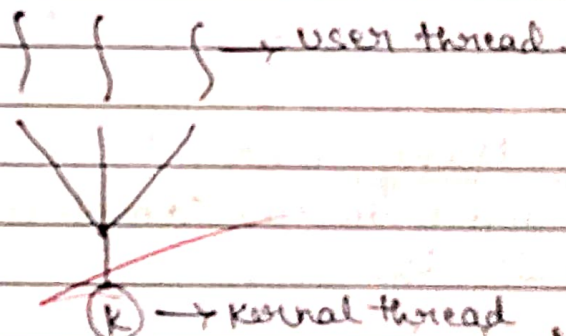 → user thread.
K → kernal thread.